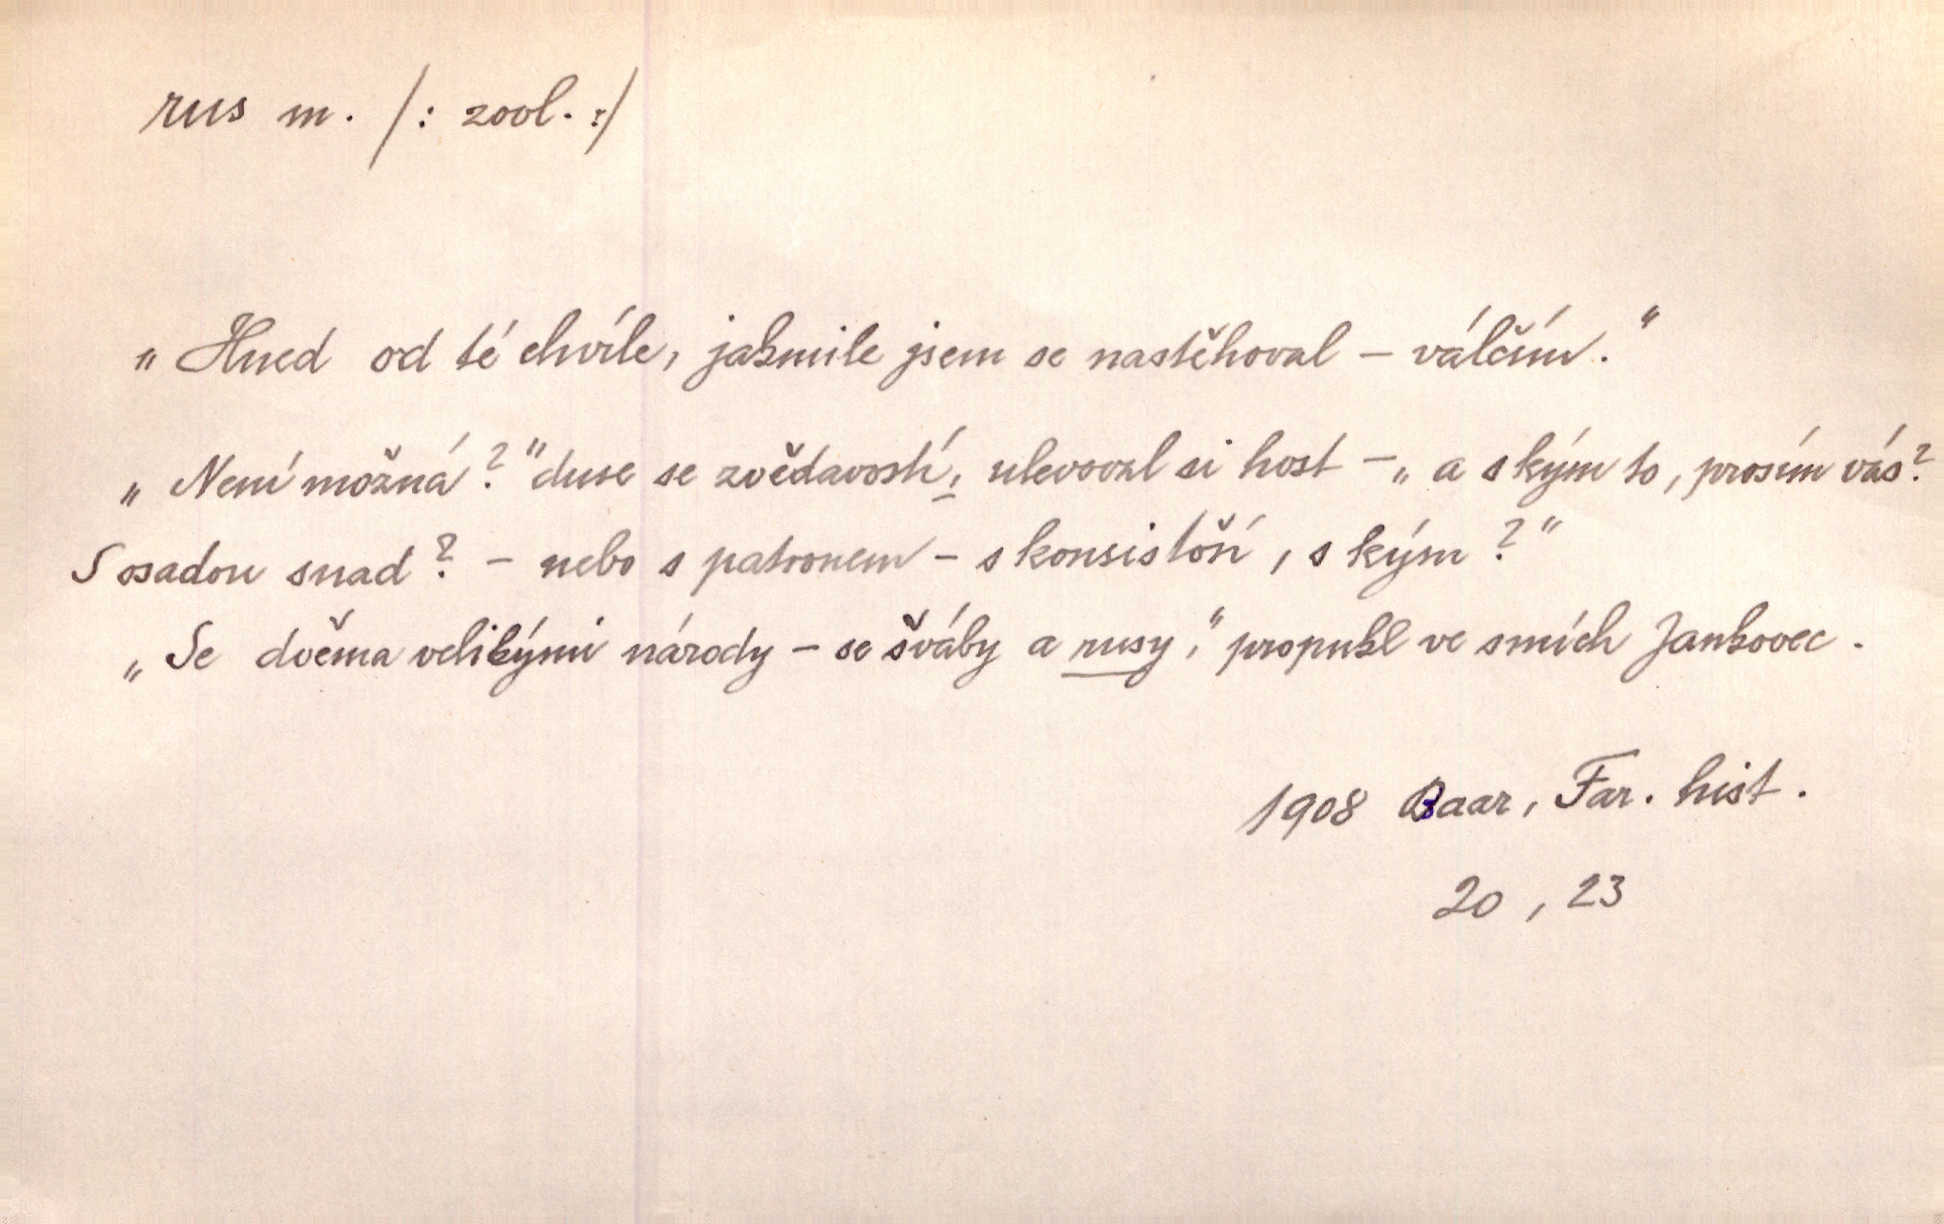 rus m. /: zool. :/
„Hned od té chvíle, jakmile jsem se nastěhoval – válčím.“
„Není možná?“ duse se zvědavostí, ulevoval si host – „a s kým to, prosím vás?
S osadou snad? – nebo s patronem – s konsistoří, s kým?“
„Se dvěma velikými národy – se šváby a rusy,“ propukl ve smích Jankovec.
1908 Baar, Far. hist.
20, 23